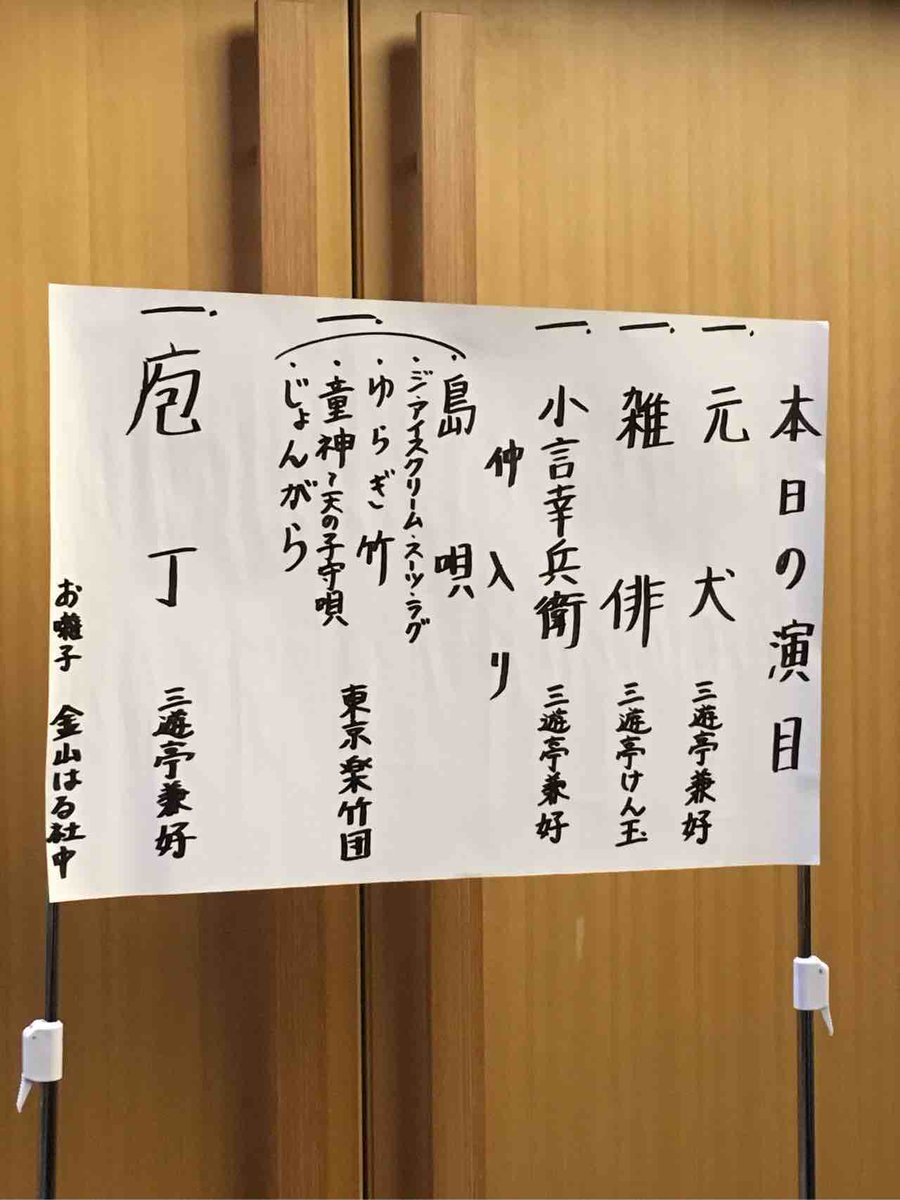 本日の演目
一. 元犬 三遊亭兼好
一. 雑俳 三遊亭けん玉
一. 小言幸兵衛 三遊亭兼好
仲入り
一.
・島唄
・ジ・アイスクリーム・スーツ・ラグ
・ゆらぎ竹
・童神~天の子守唄
・じょんがら
東京楽竹団
一. 庖丁 三遊亭兼好
お囃子 金山はる社中